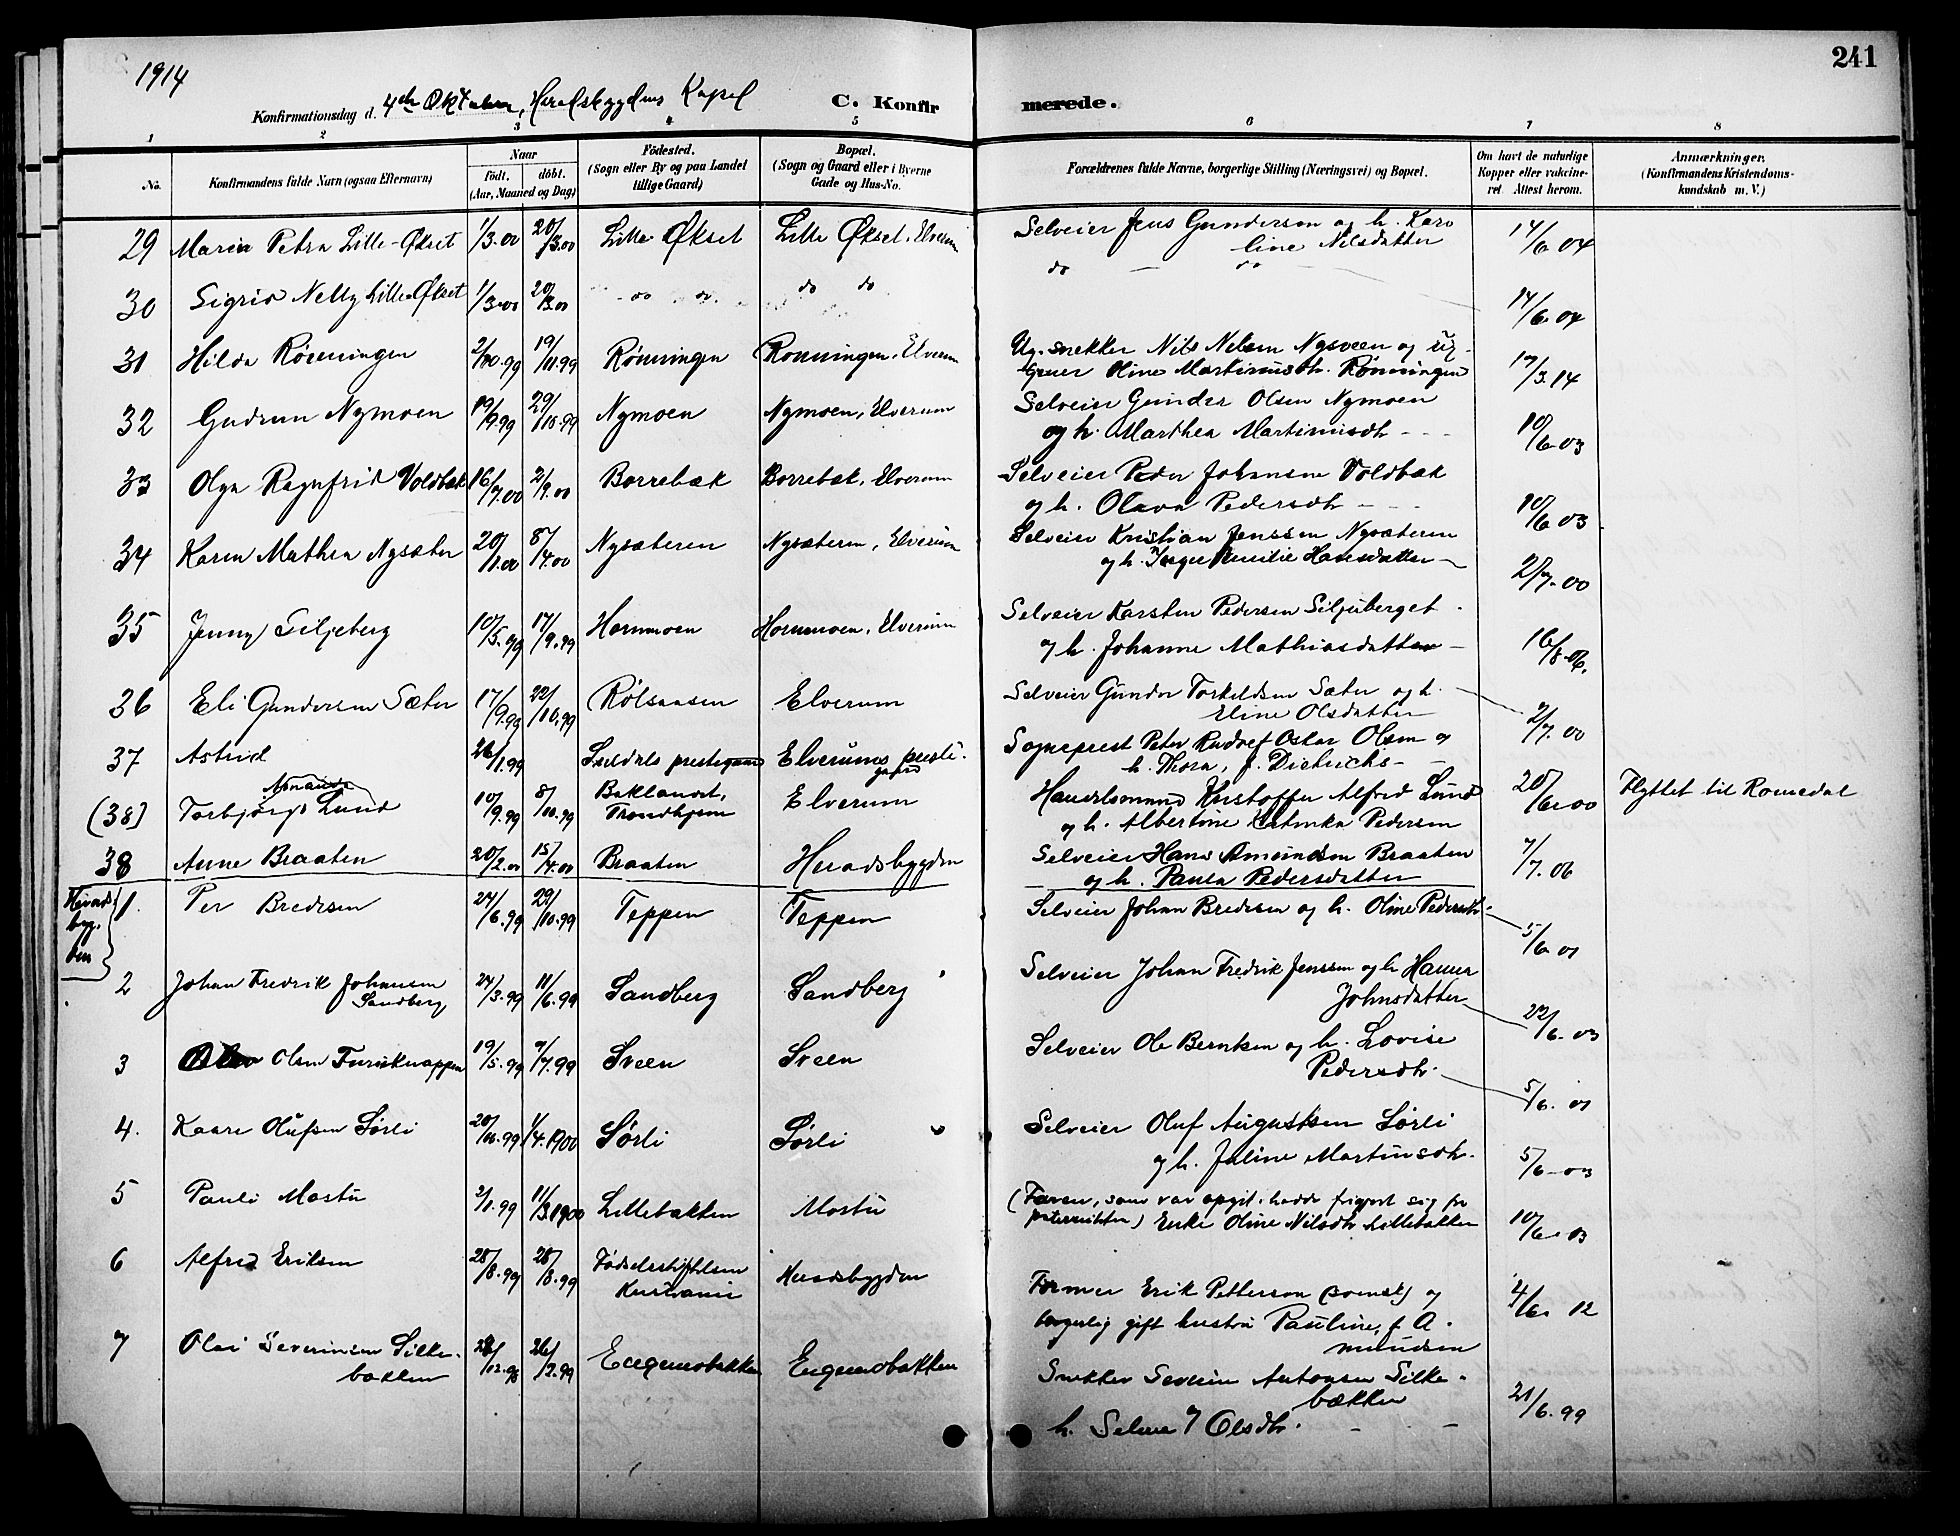 1914
241
Konfirmationsdag d. 4de Oktober, Heradsbygdens Kapel
C. Konfirmerede.
1 2 3 4 5 6 7 8
No.
Konfirmandens fulde Navn (ogsaa Efternavn)
Naar
født. døbt.
(Aar, Maaned og Dag)
Fødested.
(Sogn eller By og paa Landet
tillige Gaard)
Bopæl.
(Sogn og Gaard eller i Byerne
Gade og Hus-No.
Forældrenes fulde Navne, borgerlige Stilling (Næringsvei) og Bopæl.
Om havt de naturlige
Kopper eller vakcine-
ret. Attest herom.
Anmærkninger.
(Konfirmandens Kristendoms-
kundskab m. V.)
29 Maria Petra Lille-Økset 1/3.00 20/3.00 Lille Økset Lille Økset, Elverum Selveier Jens Gundersen og h. Karo
line Nilsdatter 14/6 04
30 Sigrid Nelly Lille-Økset 1/3.00 20/3.00 do do do do do do 14/6.04
31 Hilda Rønningen 2/10.99 19/11.99 Rønningen Rønningen, Elverum Ug. snekker Nils Nilsen Nysveen og ug.
Oline Martinusdtr. Rønningen 17/3.14
32 Gudrun Nymoen 19/9.99 29/10.99 Nymoen Nymoen, Elverum Selveier Gunder Olsen Nymoen
og h. Marthea Martinusdtr 10/6.03
33 Olga Ragnfrid Voldbæk 16/7.00 2/9.00 Borrebæk Borrebæk, Elverum Selveier Peder Johansen Voldbæk
og h. Olava Pedersdtr 10/6.03
34 Karen Mathea Nysæter 20/1.00 8/4.00 Nysæteren Nysæteren, Elverum Selveier Kristian Jenssen Nysæteren
og h. Emilie Hansdatter 2/7.00
35 Jenny Siljeberg 10/5.99 17/9.99 Hornmoen Hornmoen, Elverum Selveier Karsten Pedersen Siljuberget
og h. Johanne Mathiasdatter 16/8.06.
36 Eli Gundersen Sæter 17/9.99 22/10.99 Rølsaasen Elverum Selveier Gunder Torkeldsen Sæter og h.
Eline Olsdatter 2/7.00
37 Astrid 26/1.99 prestegaard Elverums preste-
gaard Sogneprest Peter Rudolf Oskar Olsen og
h. Thora, f. Dietrichs
(38) Torbjørg Lund 10/9.99 8/10.99 Baklandet,
Trondhjem Elverum Handelsmand Kristoffer Alfred Lund
og h. Albertine Katinka Pedersen 20/6.00 Flyttet til Romedal
38 Anne Braaten 20/2.00 15/4.00 Braaten Heradsbygden Selveier Hans Amundsen Braaten
og h. Paula Pedersdatter 7/7.06
Herads-
byg-
den
1. Per Bredesen 24/6.99 29/10.99 Teppen Teppen Selveier Johan Bredesen og h. Oline Pedersdtr. 5/6.01
2 Johan Fredrik Johansen
Sandberg 24/3.99 11/6.99 Sandberg Sandberg Selveier Johan Fredrik Jenssen og h. Hanna
Johnsdatter 22/6.03
3 Olsen Furuknappen 19/5.99 9/7.99 Sveen Sveen Selveier Ole Berntsen og h. Lovise
Pedersdtr. 5/6.01
4. Kaare Olufsen Sørli 20/10.99 1/4.1900 Sørli Sørli Selveier Oluf Augustsen Sørli
og h. Juline Martinsdtr. 5/6.03
5 Pauli Mostu 2/1.99 11/3.1900 Lillebakken Mostu (Faren, som var opgit, hadde frigjort sig for
paterniteten) Enke Oline Nilsdtr Lillebakken 10/6.03
6 Alfred Eriksen 28/8.99 28/8.99 Fødselsstiftelsen
Kristiania Heradsbygden Former Erik Petterson (svensk) og
borgerlig gift hustru Pauline, f. A-
mundsen 4/6.12
7 Olai Severinsen Silke-
bækken 28/12.98 26/2.99 Engenesbakken Engenesbakken Snekker Severin Antonsen Silke-
bækken
og h. Olsdtr. 21/6.99